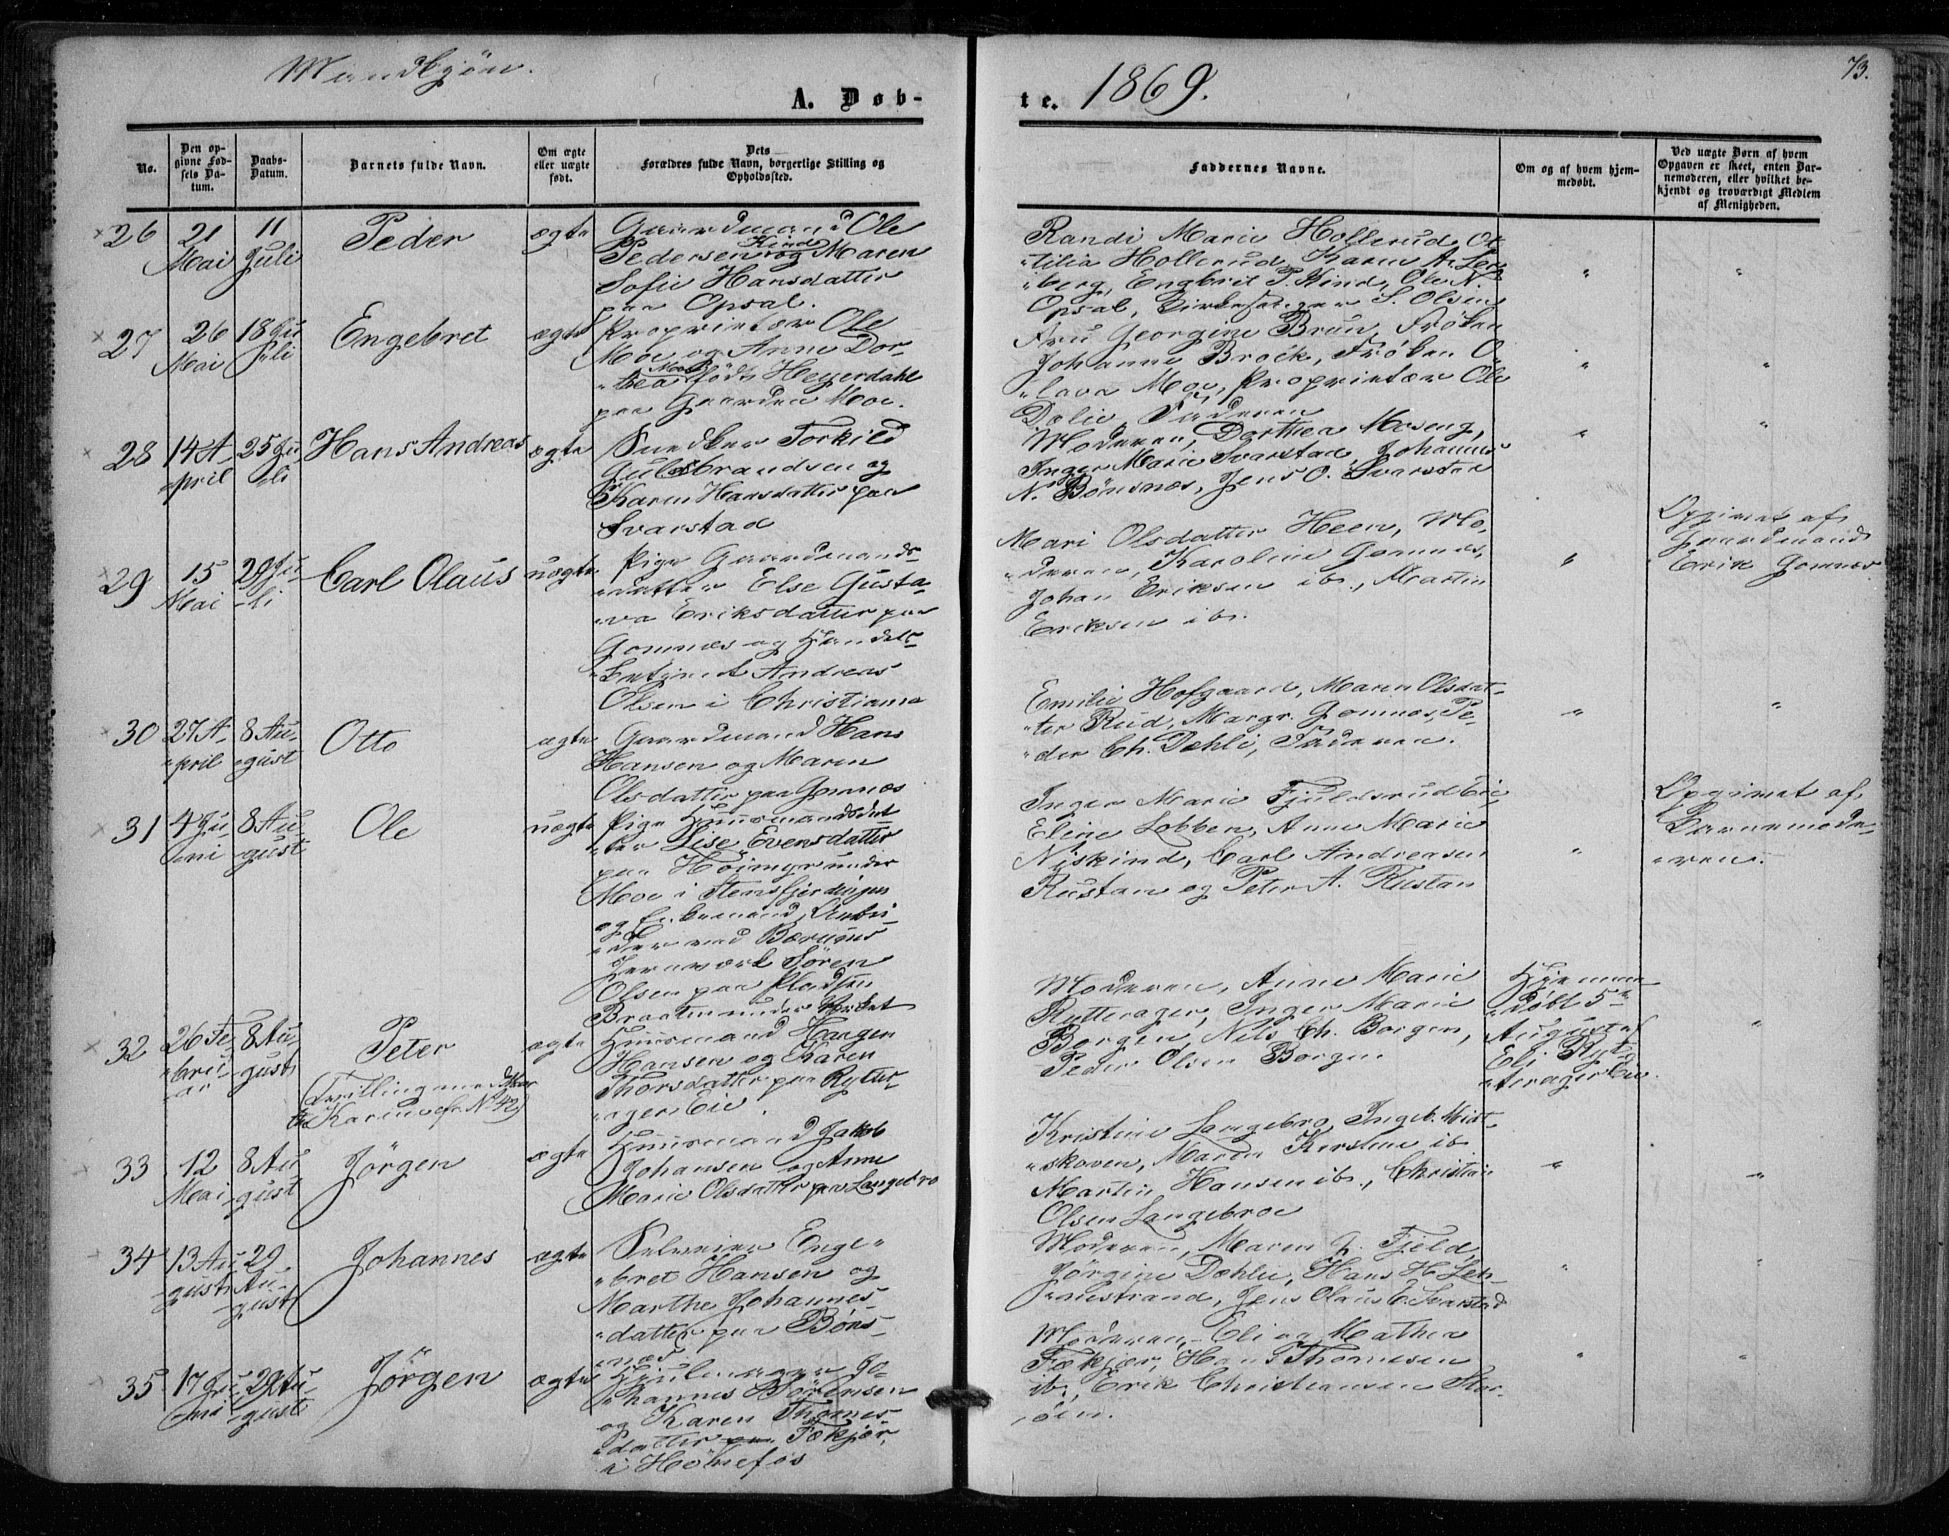 Mandkjön.
A. Døb-
te. 1869.
73.
No.
Den op-
givne Fød-
sels Da-
tum.
Daabs-
Datum.
Barnets fulde Navn.
Om ægte
eller uægte
født.
Dets
Forældres fulde Navn, borgerlige Stilling og
Opholdssted.
Faddernes Navne.
Om og af hvem hjem-
medøbt.
Ved uægte Børn af hvem
Opgaven er skeet, enten Bar-
nemoderen, eller hvilket be-
kjendt og troværdigt Medlem
af Menigheden.
26
21
Mai
11
Juli
Peder
ægte
Gaardmand Ole
Pedersen Kind og Maren
Sofie Hansdatter
paa Opsal.
Randi Marie Hollerud, Ot-
"tilia Hollerud, Karen A. Ler-
"berg, Engbrit P. Kind, Ole N.
Opsal, Kirkesanger S. Olsen
"
"
27
26
Mai
18 Ju-
"li
Engebret
ægte
Proprietær Ole
Moe og Anne Dor-
"thea Moe født Heyerdahl
paa Gaarden Moe.
Fru Georgine Brun, Frøken
Johanne Brock, Frøken O-
"lava Moe, Proprietær Ole
Dælie, Faderen
"
"
28
14 A-
"pril
25 Ju-
"li
Hans Andreas
ægte
Snedker Torkild
Gulbrandsen og
Karen Hansdatter paa
Svarstad
Moderen, Dorthea Moseng,
Inger Marie Svarstad, Johannes
N. Bönsnæs, Jens O. Svarstad
"
"
29
15
Mai
29 Ju-
"li
Carl Olaus
uægte
Pige Gaardmands-
"datter Else Gusta-
"va Eriksdatter paa
Gomnæs og Handels-
"betjent Andreas
Olsen i Christiania
Mari Olsdatter Heen, Mo-
"deren, Karoline Gomnæs,
Johan Eriksen ib., Martin
Eriksen ib.
"
Opgivet af
Gaardmand
Erik Gomnæs
30
27 A-
"pril
8 Au-
"gust
Otto
ægte
Gaardmand Hans
Hansen og Maren
Olsdatter paa Gomnæs
Emilie Hofgaard, Maren Olsdat-
"ter Rud, Margr. Gomnæs, Pe-
"der Ch. Dæhli, Faderen.
"
"
31
4 Ju-
"ni
8 Au-
"gust
Ole
uægte
Pige Huusmandsdat-
"ter Lise Evensdatter
paa Höimyr under
Moe i Stensfjerdingen
og Enkemand, Arbei-
"der ved Bærums
Jernværk Sören
Olsen paa Pladsen
Braaten under Værket
Inger Marie Fjuldsrud Eie,
Eline Lobben, Anne Marie
Niskind, Carl Andreasen
Rustan og Peter A. Rustan
"
Opgivet af
Barnemode-
"ren.
32
26 Fe-
"bru-
ar
8 Au-
"gust
Peter
(Tvilling med Mar-
"the Karine cfr. No 42)
ægte
Huusmand Hangen
Hansen og Karen
Thorsdatter paa Ryter-
"ager Eie.
Moderen, Anne Marie
Rytterager, Inger Marie
Borgen, Nils Ch. Borgen,
Peder Olsen Borgen
Hjemme-
"döbt 5te
August af
Eli Ryt-
"terager Eie.
"
33
12
Mai
8 Au-
gust
Jörgen
ægte
Huusmand Jakob
Johansen og Anne
Marie Olsdatter paa Langebro
Kristine Langebro, Ingeb. Midt-
"skoven, Maren Kirstine ib.
Martin Hansen ib., Christian
Olsen Langebroe
"
"
34
13 Au-
"gust
29
Au-
"gust
Johannes
ægte
Selveier Enge-
"bret Hansen og
Marthe Johannes-
"datter paa Böns-
"næs.
Moderen, Maren J. Fjeld,
Jörgine Dæhlie, Hans H. Leh-
"nestrand, Jens Olaus E. Svarstad
"
"
35
17 Ju-
"ni
29 Au-
"gust
Jörgen
ægte
Hjulmager Jo-
"hannes Sörensen
og Karen Thomes-
"datter paa Fækjær
i Hönefos
Moderen, Eli og Mathea
Fækjær, Hans Thomesen
ib., Erik Christiansen Stor-
"öien.
"
"